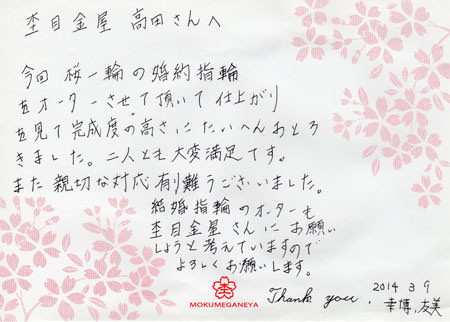 杢目金屋 高田さんへ
今回 桜一輪の婚約指輪
をオーダーさせて頂いて仕上がり
を見て完成度の高さにたいへんおどろ
きました。二人とも大変満足です。
また親切な対応有難うございました。
結婚指輪のオーダーも
杢目金屋さんにお願い
しようと考えていますので
よろしくお願いします。
MOKUMEGANEYA
Thank you.
2014 3 9
幸博、友美